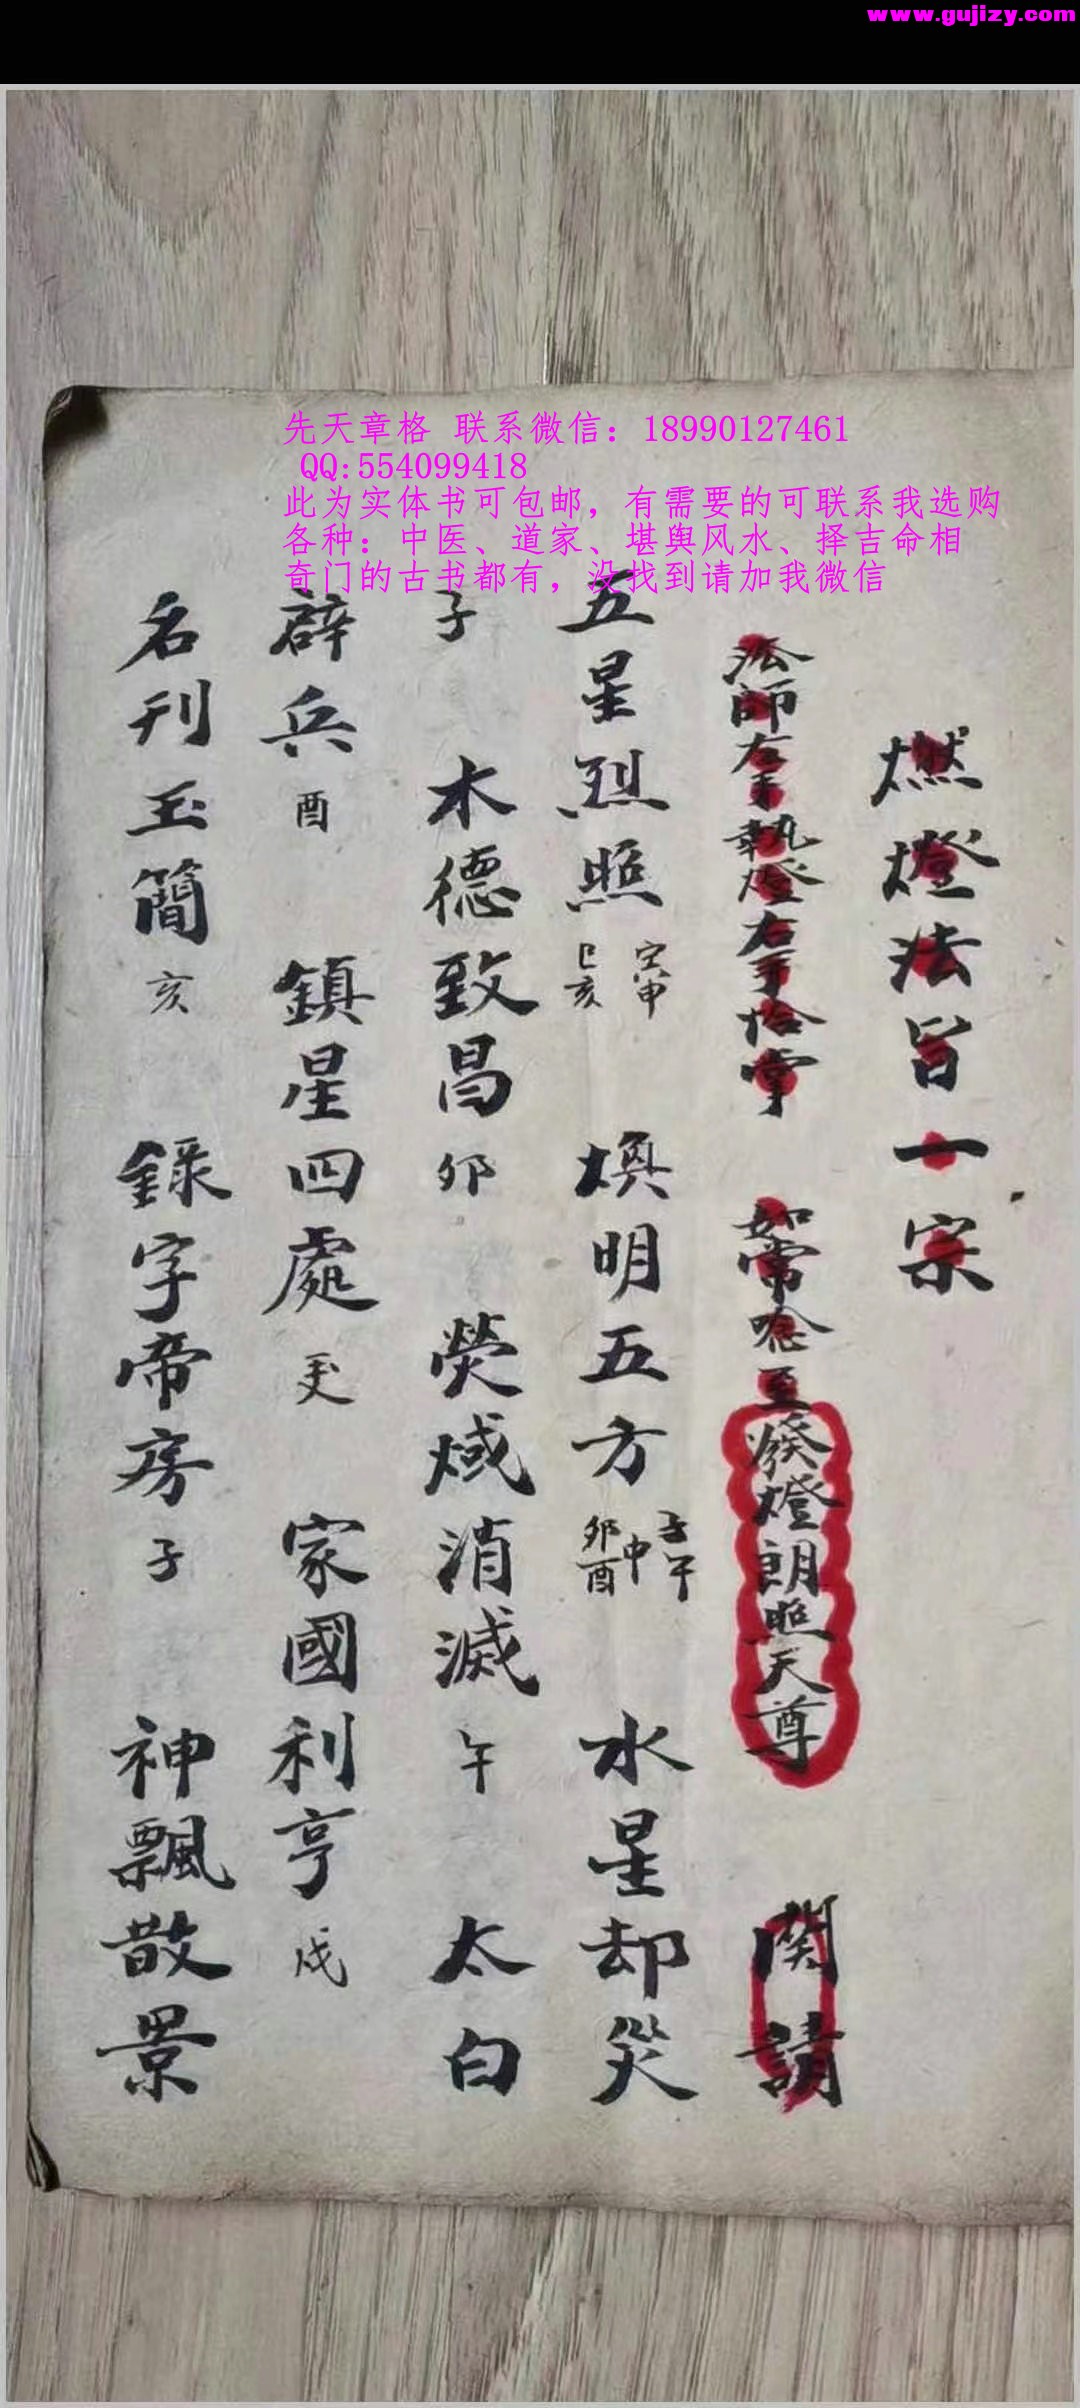 www.gujizy.com
先天章格 联系微信：18990127461
QQ:554099418
此为实体书可包邮，有需要的可联系我选购
各种：中医、道家、堪舆风水、择吉命相
奇门的古书都有，没找到请加我微信
燃燈法旨一宗
法師左手執燈右手恰掌 如常唸至發燈朗照天尊 関請
五星烈照 寅申 巳亥 煥明五方 子午 中 卯酉 水星却災
子 木德致昌 卯 熒惑消滅 午 太白
辟兵 酉 鎮星四處 家國利亨 戌
名刊玉簡 亥 錄字帝房 子 神飄散景